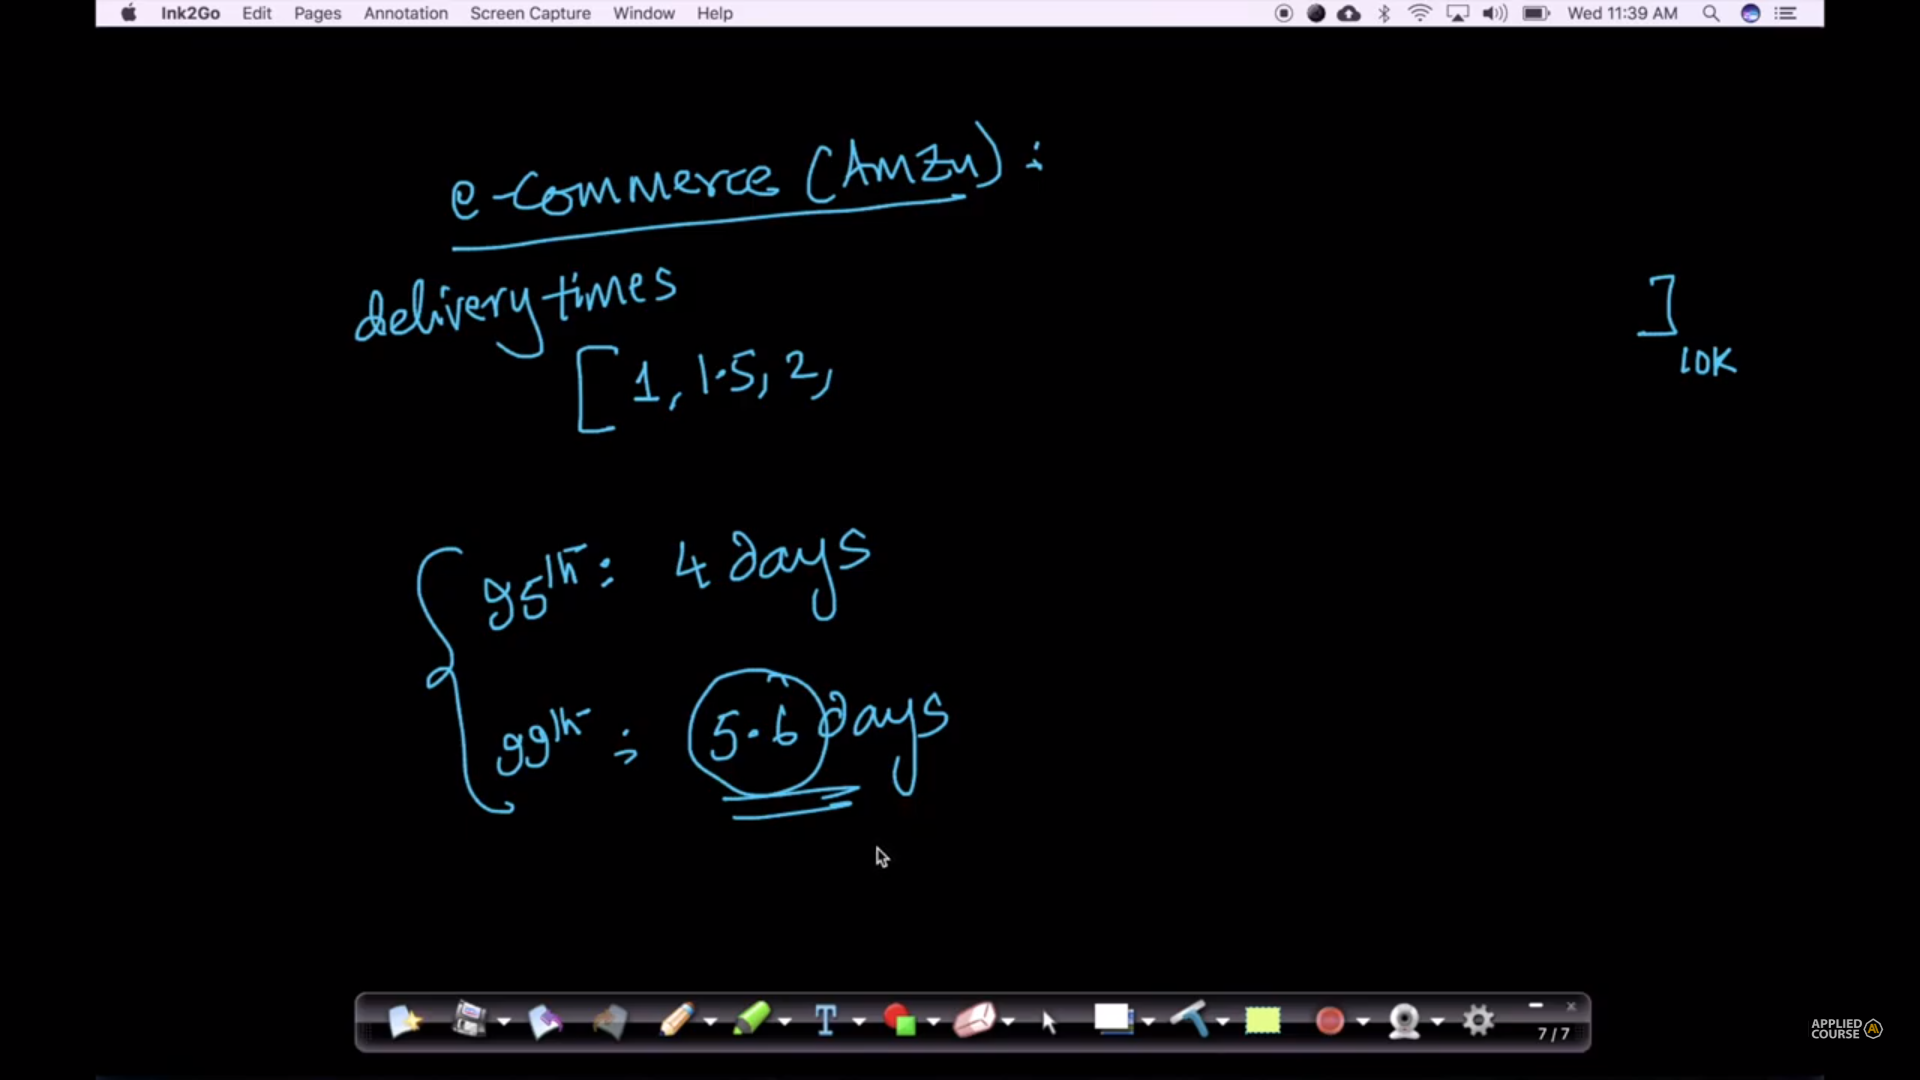 Ink2Go Edit Pages Annotation Screen Capture Window Help Wed 11:39 AM
e-commerce (AmZn) :
delivery times
[ 1, 1.5, 2, ] 10K
95th : 4 days
99th : 5.6 days
T
7/7
APPLIED
COURSE